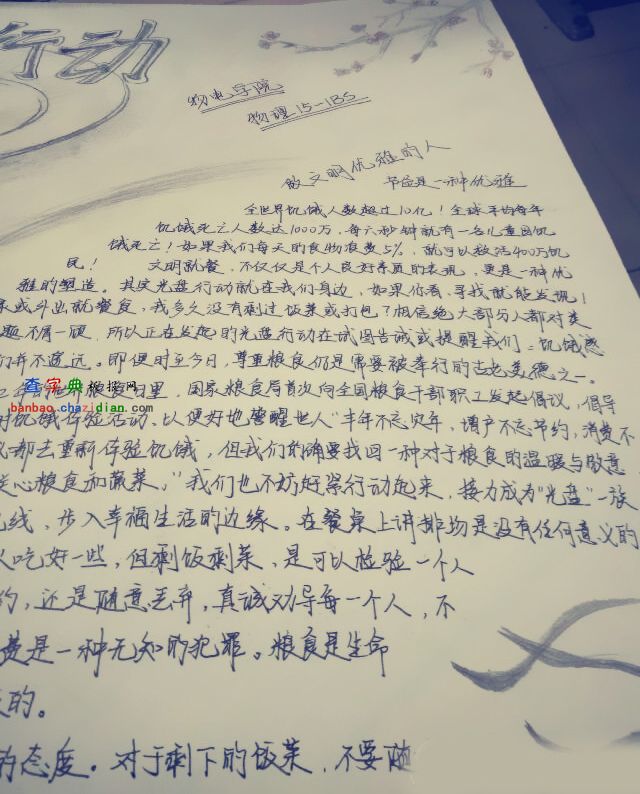 行动
物电学院
物理15-1BS
做文明优雅的人
节俭是一种优雅
全世界饥饿人数超过10亿！全球平均每年
饥饿死亡人数达1000万，每六秒钟就有一名儿童因饥
饿死亡！如果我们每天的食物浪费5%，就可以救活400万饥
民！ 文明就餐，不仅仅是个人良好素质的表现，更是一种优
雅的塑造。其实光盘行动就在我们身边，如果你看，寻找就能发现！
家或外出就餐食，我多久没有剩过饭菜或打包？相信绝大部分人都对类
题不屑一顾，所以正在发起的光盘行动在试图告诫或提醒我们：饥饿感
们并不遥远。即便时至今日，尊重粮食仍是需要被奉行的古老美德之一。
国家粮食局首次向全国粮食干部职工发起倡议，倡导
时饥饿体验活动，以便好地警醒世人"丰年不忘灾年，增产不忘节约，消费不
都去重新体验饥饿，但我们的确要找回一种对于粮食的温暖与敬意
关心粮食和蔬菜，"我们也不妨好紧行动起来，接力成为"光盘"一族
线，步入幸福生活的边缘。在餐桌上讲排场是没有任何意义的
吃好一些，但剩饭剩菜，是可以检验一个人
约，还是随意丢弃，真诚劝导每一个人，不
费是一种无知的犯罪。粮食是生命
的。
的态度。对于剩下的饭菜，不要随
查字典板报网
banbao.chazidian.com